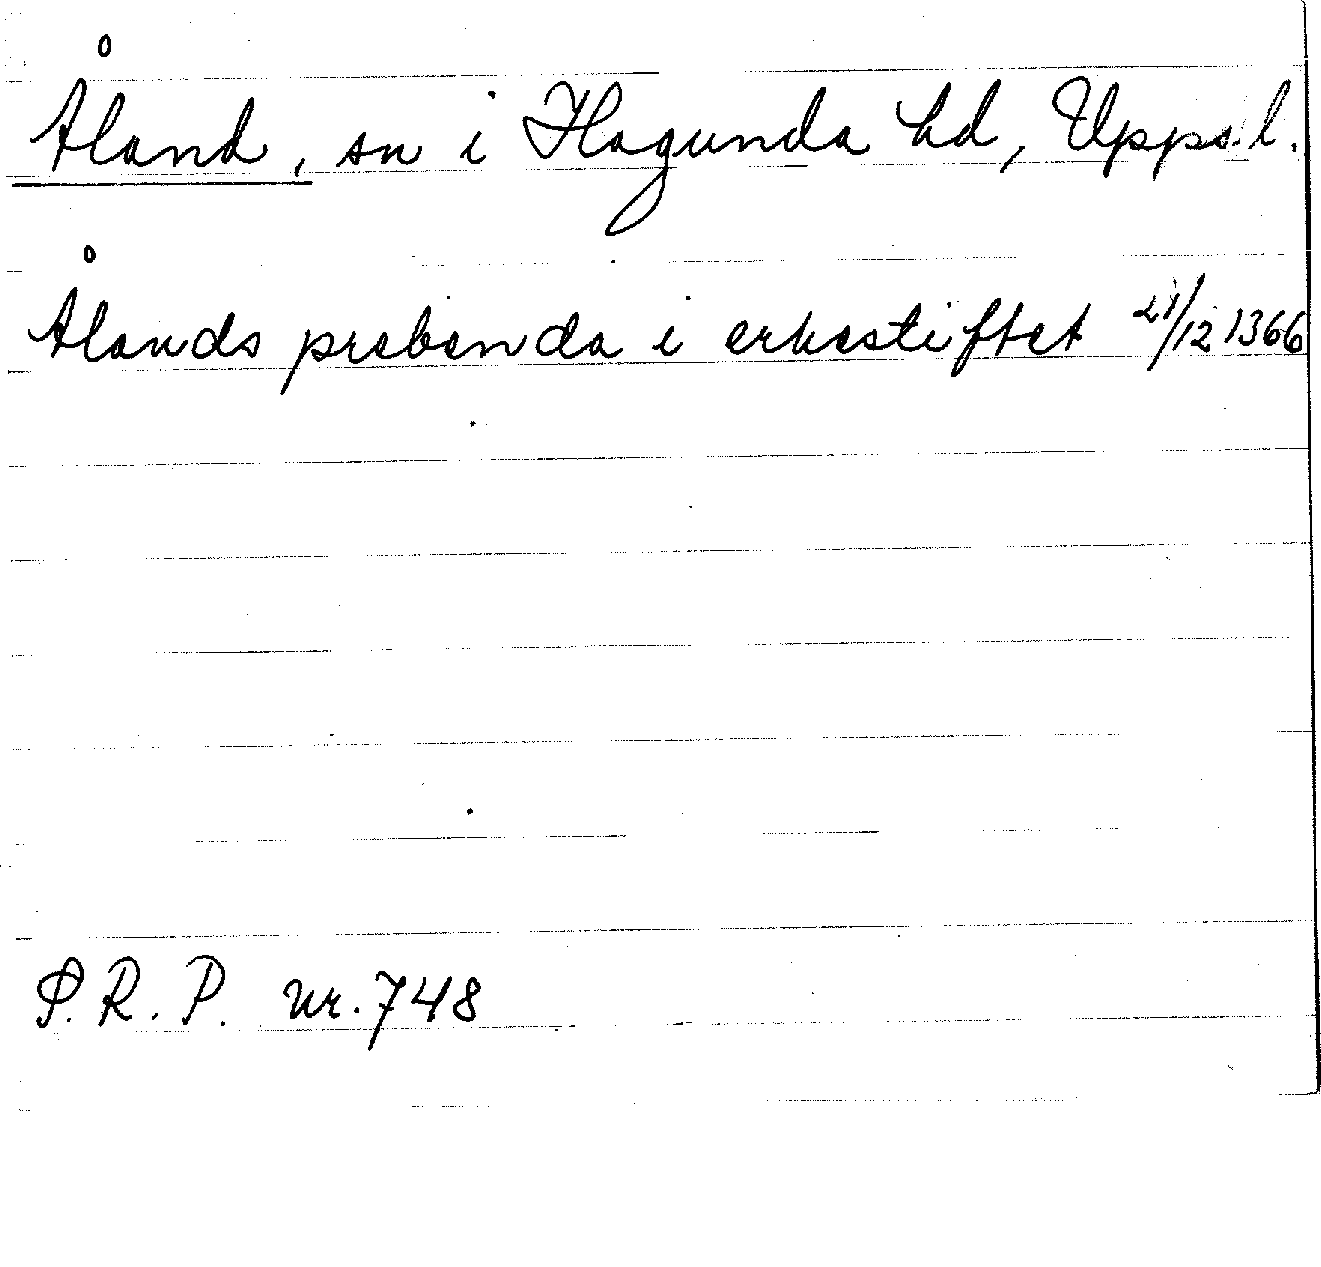 Åland, sn i Hagunda hd, Upps. l.
Ålands prebenda i erkestiftet 21/12 1366
S.R.P. nr. 748